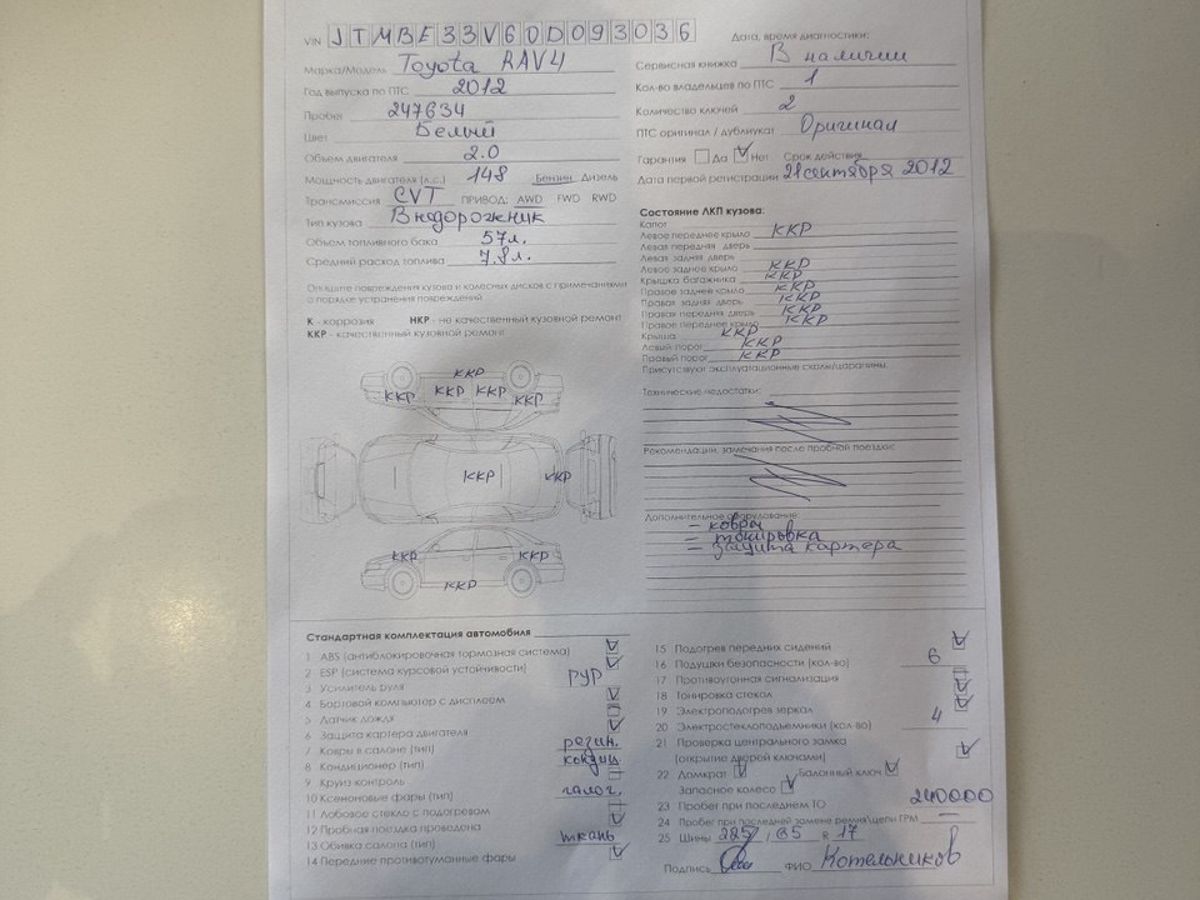 VIN JTMBE33V60D093036
Марка/Модель Toyota RAV4
Год выпуска по ПТС 2012
Пробег 247634
Цвет Белый
Объем двигателя 2.0
Мощность двигателя (л.с.) 148 Бензин Дизель
Трансмиссия CVT ПРИВОД: AWD FWD RWD
Тип кузова Внедорожник
Объем топливного бака 57л.
Средний расход топлива 7.8л.
Опишите повреждения кузова и колесных дисков с примечаниями
о порядке устранения повреждений
К - коррозия НКР - не качественный кузовной ремонт
ККР - качественный кузовной ремонт
ККР
ККР ККР ККР ККР
ККР ККР
ККР ККР
ККР
Дата, время диагностики:
Сервисная книжка В наличии
Кол-во владельцев по ПТС 1
Количество ключей 2
ПТС оригинал / дубликат Оригинал
Гарантия Да Нет Срок действия
Дата первой регистрации 21 сентября 2012
Состояние ЛКП кузова:
Капот
Левое переднее крыло ККР
Левая передняя дверь
Левая задняя дверь
Левое заднее крыло ККР
Крышка багажника ККР
Правое заднее крыло ККР
Правая задняя дверь ККР
Правая передняя дверь ККР
Правое переднее крыло ККР
Крыша ККР
Левый порог ККР
Правый порог ККР
Присутствуют эксплуатационные сколы/царапины
Технические недостатки:
Рекомендации, замечания после пробной поездки:
Дополнительное оборудование:
- ковры
- тонировка
- защита картера
Стандартная комплектация автомобиля
1 ABS (антиблокировочная тормозная система)
2 ESP (система курсовой устойчивости)
3 Усилитель руля РУР
4 Бортовой компьютер с дисплеем
5 Датчик дождя
6 Защита картера двигателя
7 Ковры в салоне (тип) резин.
8 Кондиционер (тип) кондиц.
9 Круиз контроль
10 Ксеноновые фары (тип) галог.
11 Лобовое стекло с подогревом
12 Пробная поездка проведена
13 Обивка салона (тип) ткань
14 Передние противотуманные фары
15 Подогрев передних сидений
16 Подушки безопасности (кол-во) 6
17 Противоугонная сигнализация
18 Тонировка стекол
19 Электроподогрев зеркал
20 Электростеклоподъемники (кол-во) 4
21 Проверка центрального замка
(открытие дверей ключами)
22 Домкрат Балонный ключ
Запасное колесо
23 Пробег при последнем ТО 240000
24 Пробег при последней замене ремня\цепи ГРМ —
25 Шины 225 / 65 R 17
Подпись ФИО Котельников